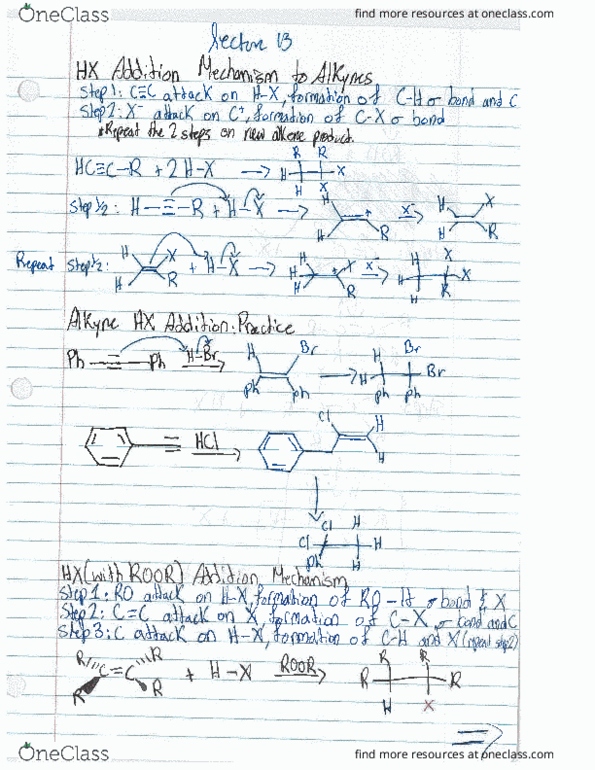 OneClass
find more resources at oneclass.com
Lecture 13
HX Addition Mechanism to Alkynes
Step 1: C≡C attack on H-X, formation of C-H σ bond and C
Step 2: X⁻ attack on C⁺, formation of C-X σ bond
*Repeat the 2 steps on new alkene product.
HC≡C-R + 2 H-X → R R H X H X
Step 1/2: H-≡-R + H-X → H H + R X⁻ → H X H R
Repeat Step 1/2: H X H R + H-X → H H H + X R X⁻ → H X H X H R
Alkyne HX Addition: Practice
Ph-≡-Ph H-Br → H Br Ph Ph → H Br H Br Ph Ph
HCl → Cl H H
Cl H Cl H Ph H
HX (with ROOR) Addition Mechanism
Step 1: RO attack on H-X, formation of RO-H σ bond & X
Step 2: C=C attack on X, formation of C-X σ bond and C
Step 3: C attack on H-X, formation of C-H and X (repeat step 2)
R R C=C R R + H-X ROOR → R R R R H X
OneClass
find more resources at oneclass.com